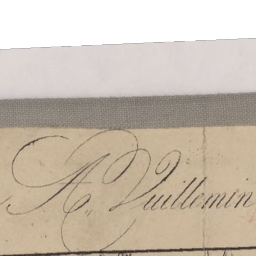 A. Vuillemin